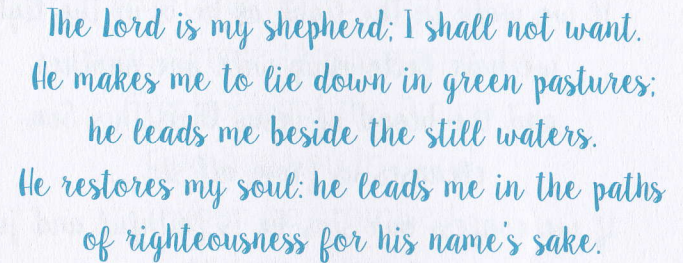 The Lord is my shepherd; I shall not want.
He makes me to lie down in green pastures;
he leads me beside the still waters.
He restores my soul: he leads me in the paths
of righteousness for his name's sake.